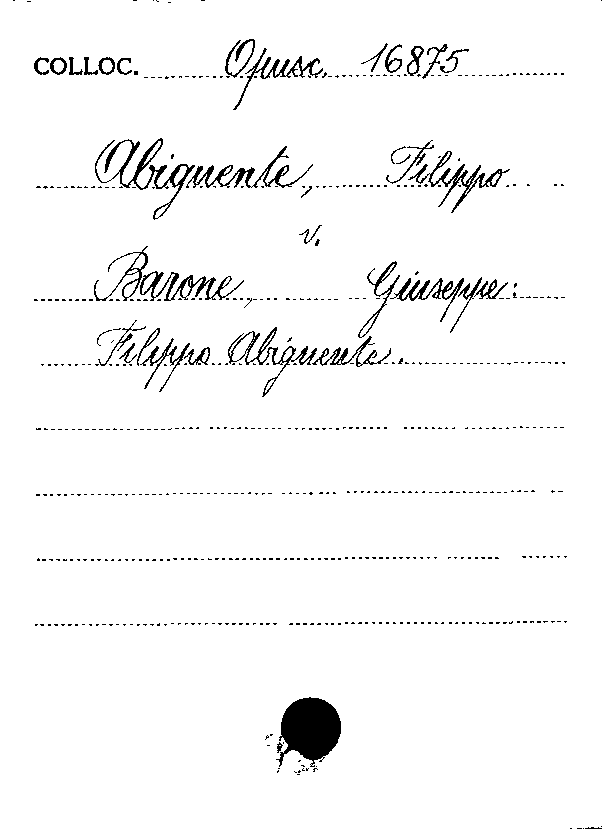 COLLOC. Opusc. 16875
Abignente, Filippo
v.
Barone, Giuseppe:
Filippo Abignente.